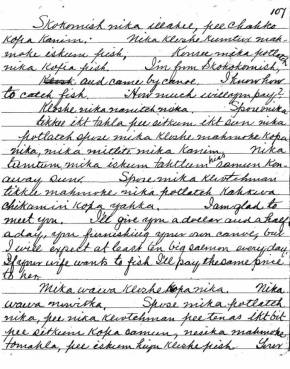 107
Skokomish nika illahee, pee chahko
Kopa Kanim. Nika Kloshe Kumtux mah-
moke iskum pish, Konsee mika potlatch
nika Kopa pish. I'm from Skokomish,
and came by canoe. I know how
to catch fish. How much will you pay?
Kloshe nika nanitch mika. Spose mika
tikke ikt tahla pee sitkum ikt sun nika
potlatch spose mika Kloshe mahmoke Kopa
nika, mika mitlite mika Kanim. Nika
tumtum mika iskum tahtlum samun Kon-
away sun. Spose mika Klootchman
tikke mahmoke nika potlatch Kahkwa
chikamin Kopa yahka. I am glad to
meet you. I'll give you a dollar and a half
a day, you furnishing your own canoe, but
I will expect at least ten big salmon every day.
If your wife wants to fish I'll pay the same price
to her.
Mika wawa Kloshe Kopa nika. Nika
wawa nowitka. Spose mika potlatch
nika, pee nika Klootchman, pee tenas ikt bit
pee sitkum Kopa samun, nesika mahmoke
tomahla, pee iskum hiyu Kloshe pish.